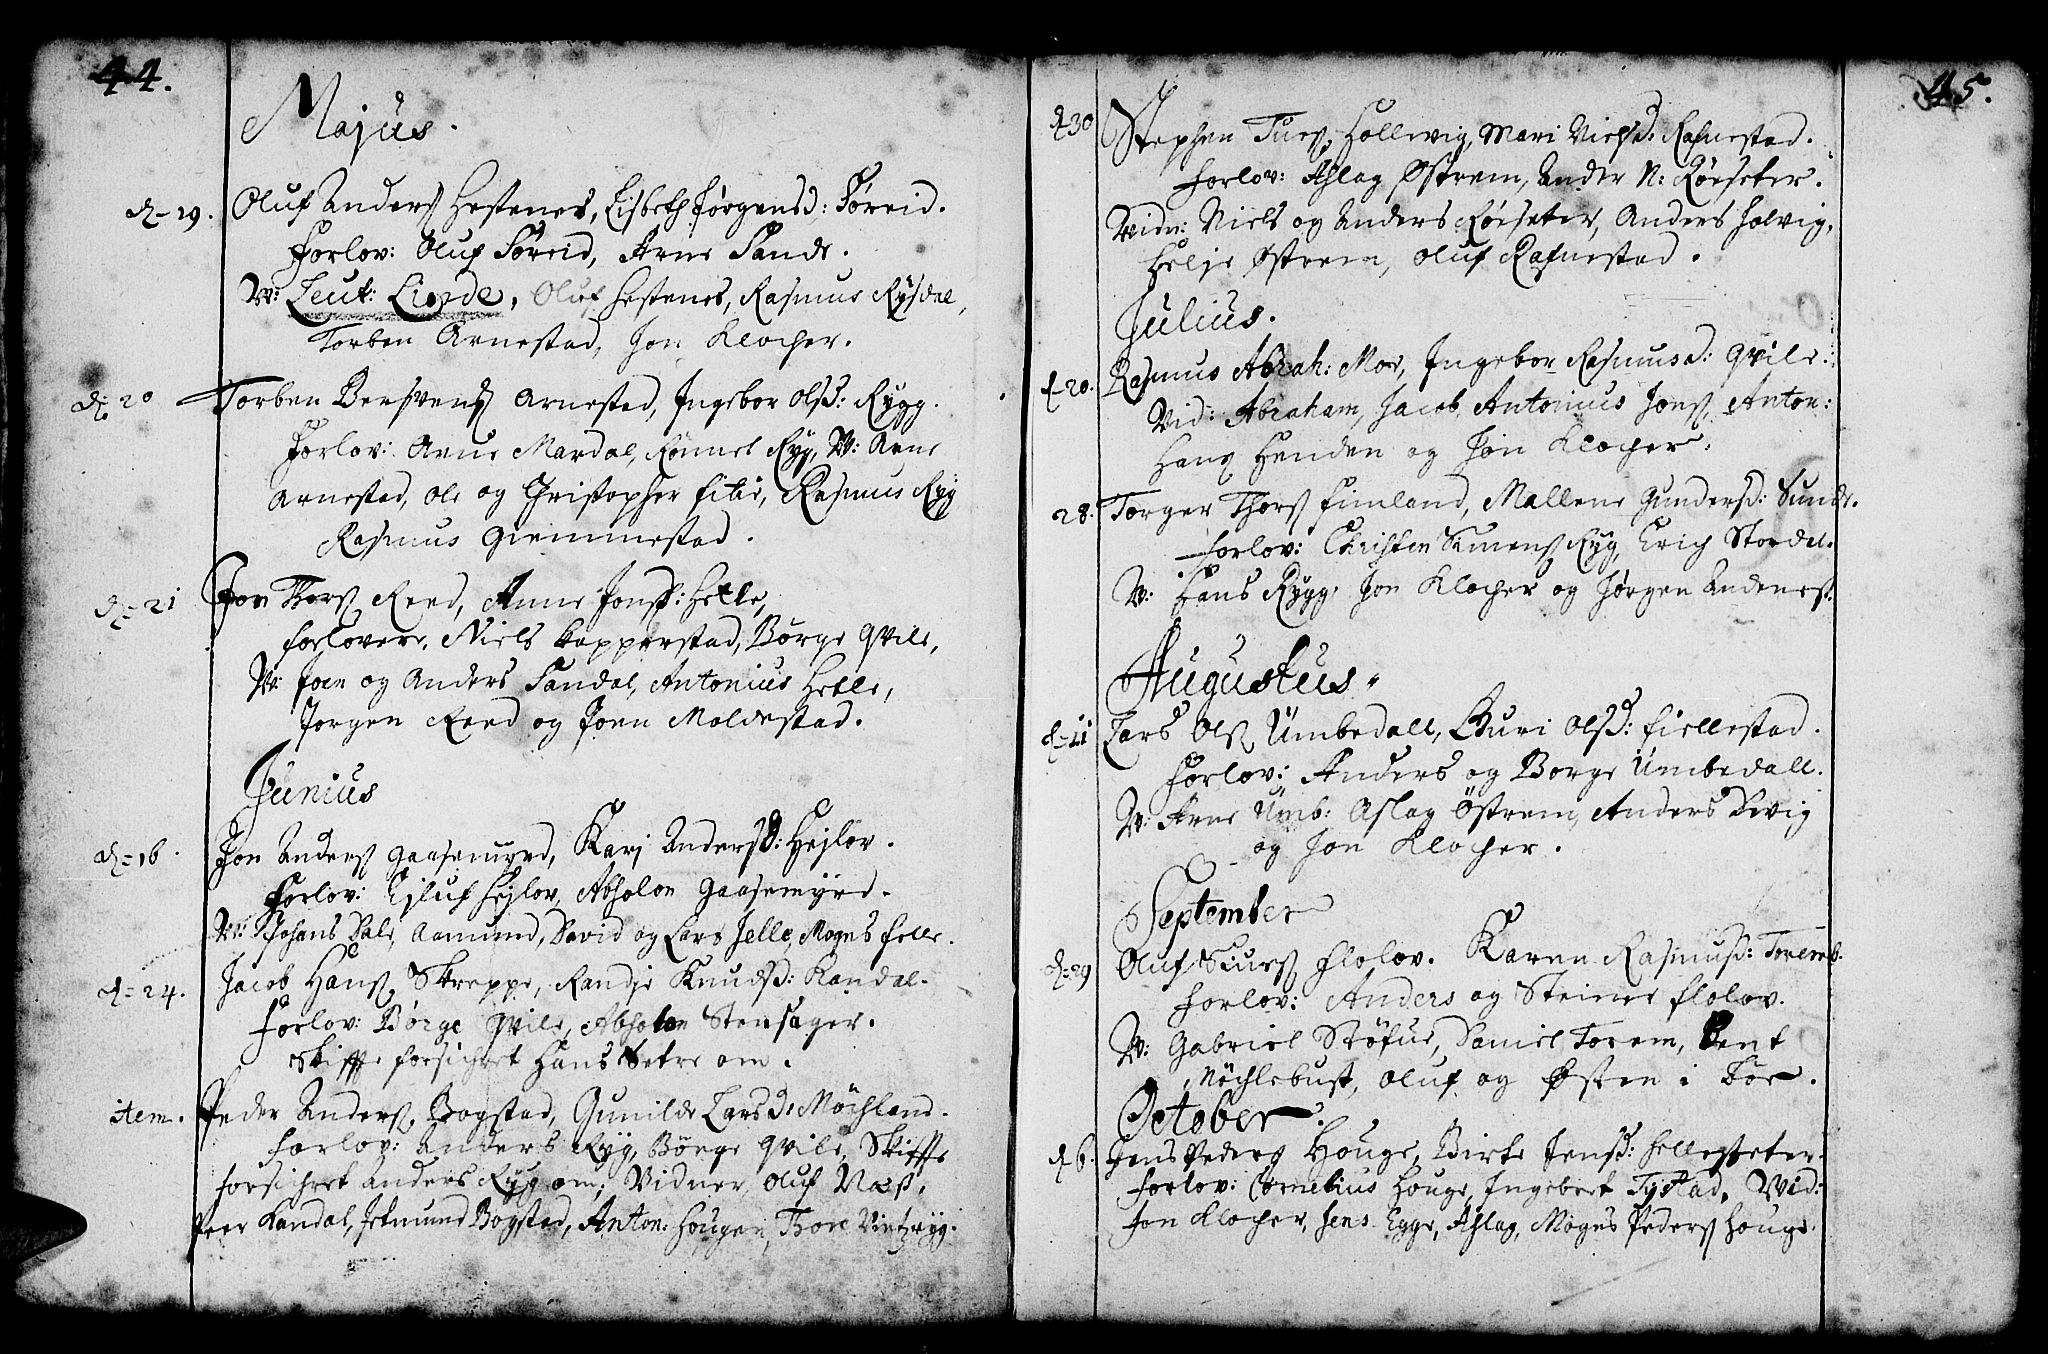 44.
Majus.
d. 19. Oluf Anders Hestenes, Lisbeth Jørgensd: Søreid.
Forlov: Oluf Søreid, Arne Sande.
W: Leut: Linde, Oluf Hestenes, Rasmus Rysdal,
Torben Arnestad, Jon Klocher.
d. 20 Torben Bersvens Arnestad, Ingebor Olsd: Rygg.
Forlov: Arne Mardal, Rønnel Ryg, W: Arne
Arnestad, Ole og Christopher Eitre, Rasmus Ryg
Rasmus Giemmestad.
d. 21 Jon Thors Reed, Anne Jonsd: Hetle,
Forlovere, Niels Kopperstad, Børge Qvile,
W: Joen og Anders Sandal, Antonius Hetle,
Jørgen Reed og Joen Moldestad.
Junius
d. 16. Jon Anders Gaasemyrd, Karj Andersd: Hejlov.
Forlov: Ejluf Hejlov, Absolon Gaasemyrd.
W: Johans Dale, Aamund, David og Lars Felle, Mogns Felle.
d. 24. Jacob Hans Skreppe, Randje Knudsd: Kandal.
Forlov: Børge Qvile, Absolon Stensager.
Skiffte forsichret Hans Setre om.
item. Peder Anders Bogstad, Gunilde Larsd: Møchland.
Forlov: Anders Ryg, Børge Qvile, Skiffte
forsichret Anders Ryg om, Vidner, Oluf Næss,
Peer Kandal, Jetmund Bogstad, Anton: Hougen, Thore Vintzryg.
45.
d. 30 Stephen Turs Hollevig, Mari Nielsd: Rafnestad.
Forlov: Aslag Østrem, Ander N: Røeseter.
Vidn: Niels og Anders Røeseter, Anders Holvig,
Helje Østrem, Oluf Rafnestad.
Julius.
d. 20. Rasmus Abrah: Moe, Ingebor Rasmusd: Qvile:
Vid: Abraham, Jacob, Antonius Jons, Anton:
Hans Henden og Jon Klocher.
28. Torger Thors Fimland, Mallene Gundersd: Sunde.
Forlov: Christen Simens Ryg, Erich Stordal.
W: Hans Rygg, Jon Klocher og Jørgen Andenes.
Augustus.
d. 11 Lars Ols Umbedall, Guri Olsd: Fiellestad.
Forlov: Anders og Børge Umbedall.
W: Arne Umb: Aslag Østrem, Anders Devig
og Jon Klocher.
September
d. 29 Oluf Siurs Flolov. Karen Rasmusd: Toremb.
Forlov: Anders og Steiner Flolov.
W: Gabriel Støfue, Daniel Torem, Bent
Møchlebust, Oluf og Østen i Bøe.
October.
d. 6. Jens Peders Houge, Birte Jensd: Hellesseter.
Forlov: Cornelius Houge, Ingebret Tystad. Wid:
Jon Klocher, Jens Egge, Aslag, Mogns Peders Houge.